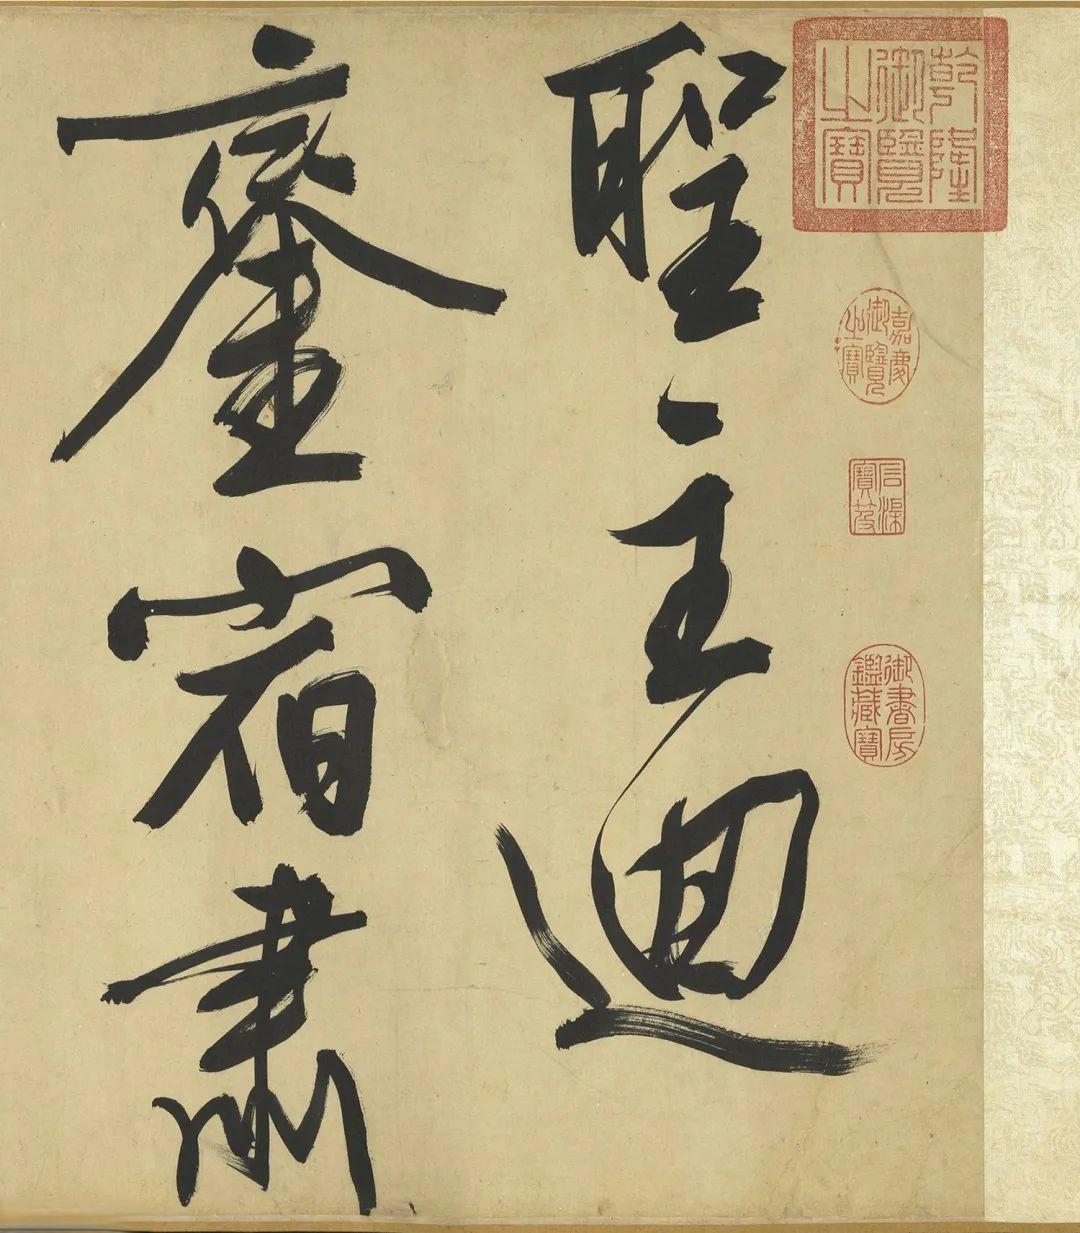 乾隆
御覽
之寶
嘉慶
御覽
之寶
石渠
寶笈
御書房
鑑藏寶
聖主迴
鑾宿肅